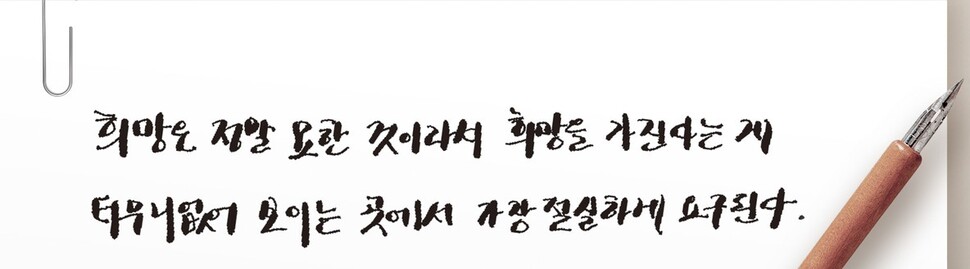 희망은 정말 묘한 것이라서 희망을 가진다는 게
터무니없어 보이는 곳에서 가장 절실하게 요구된다.